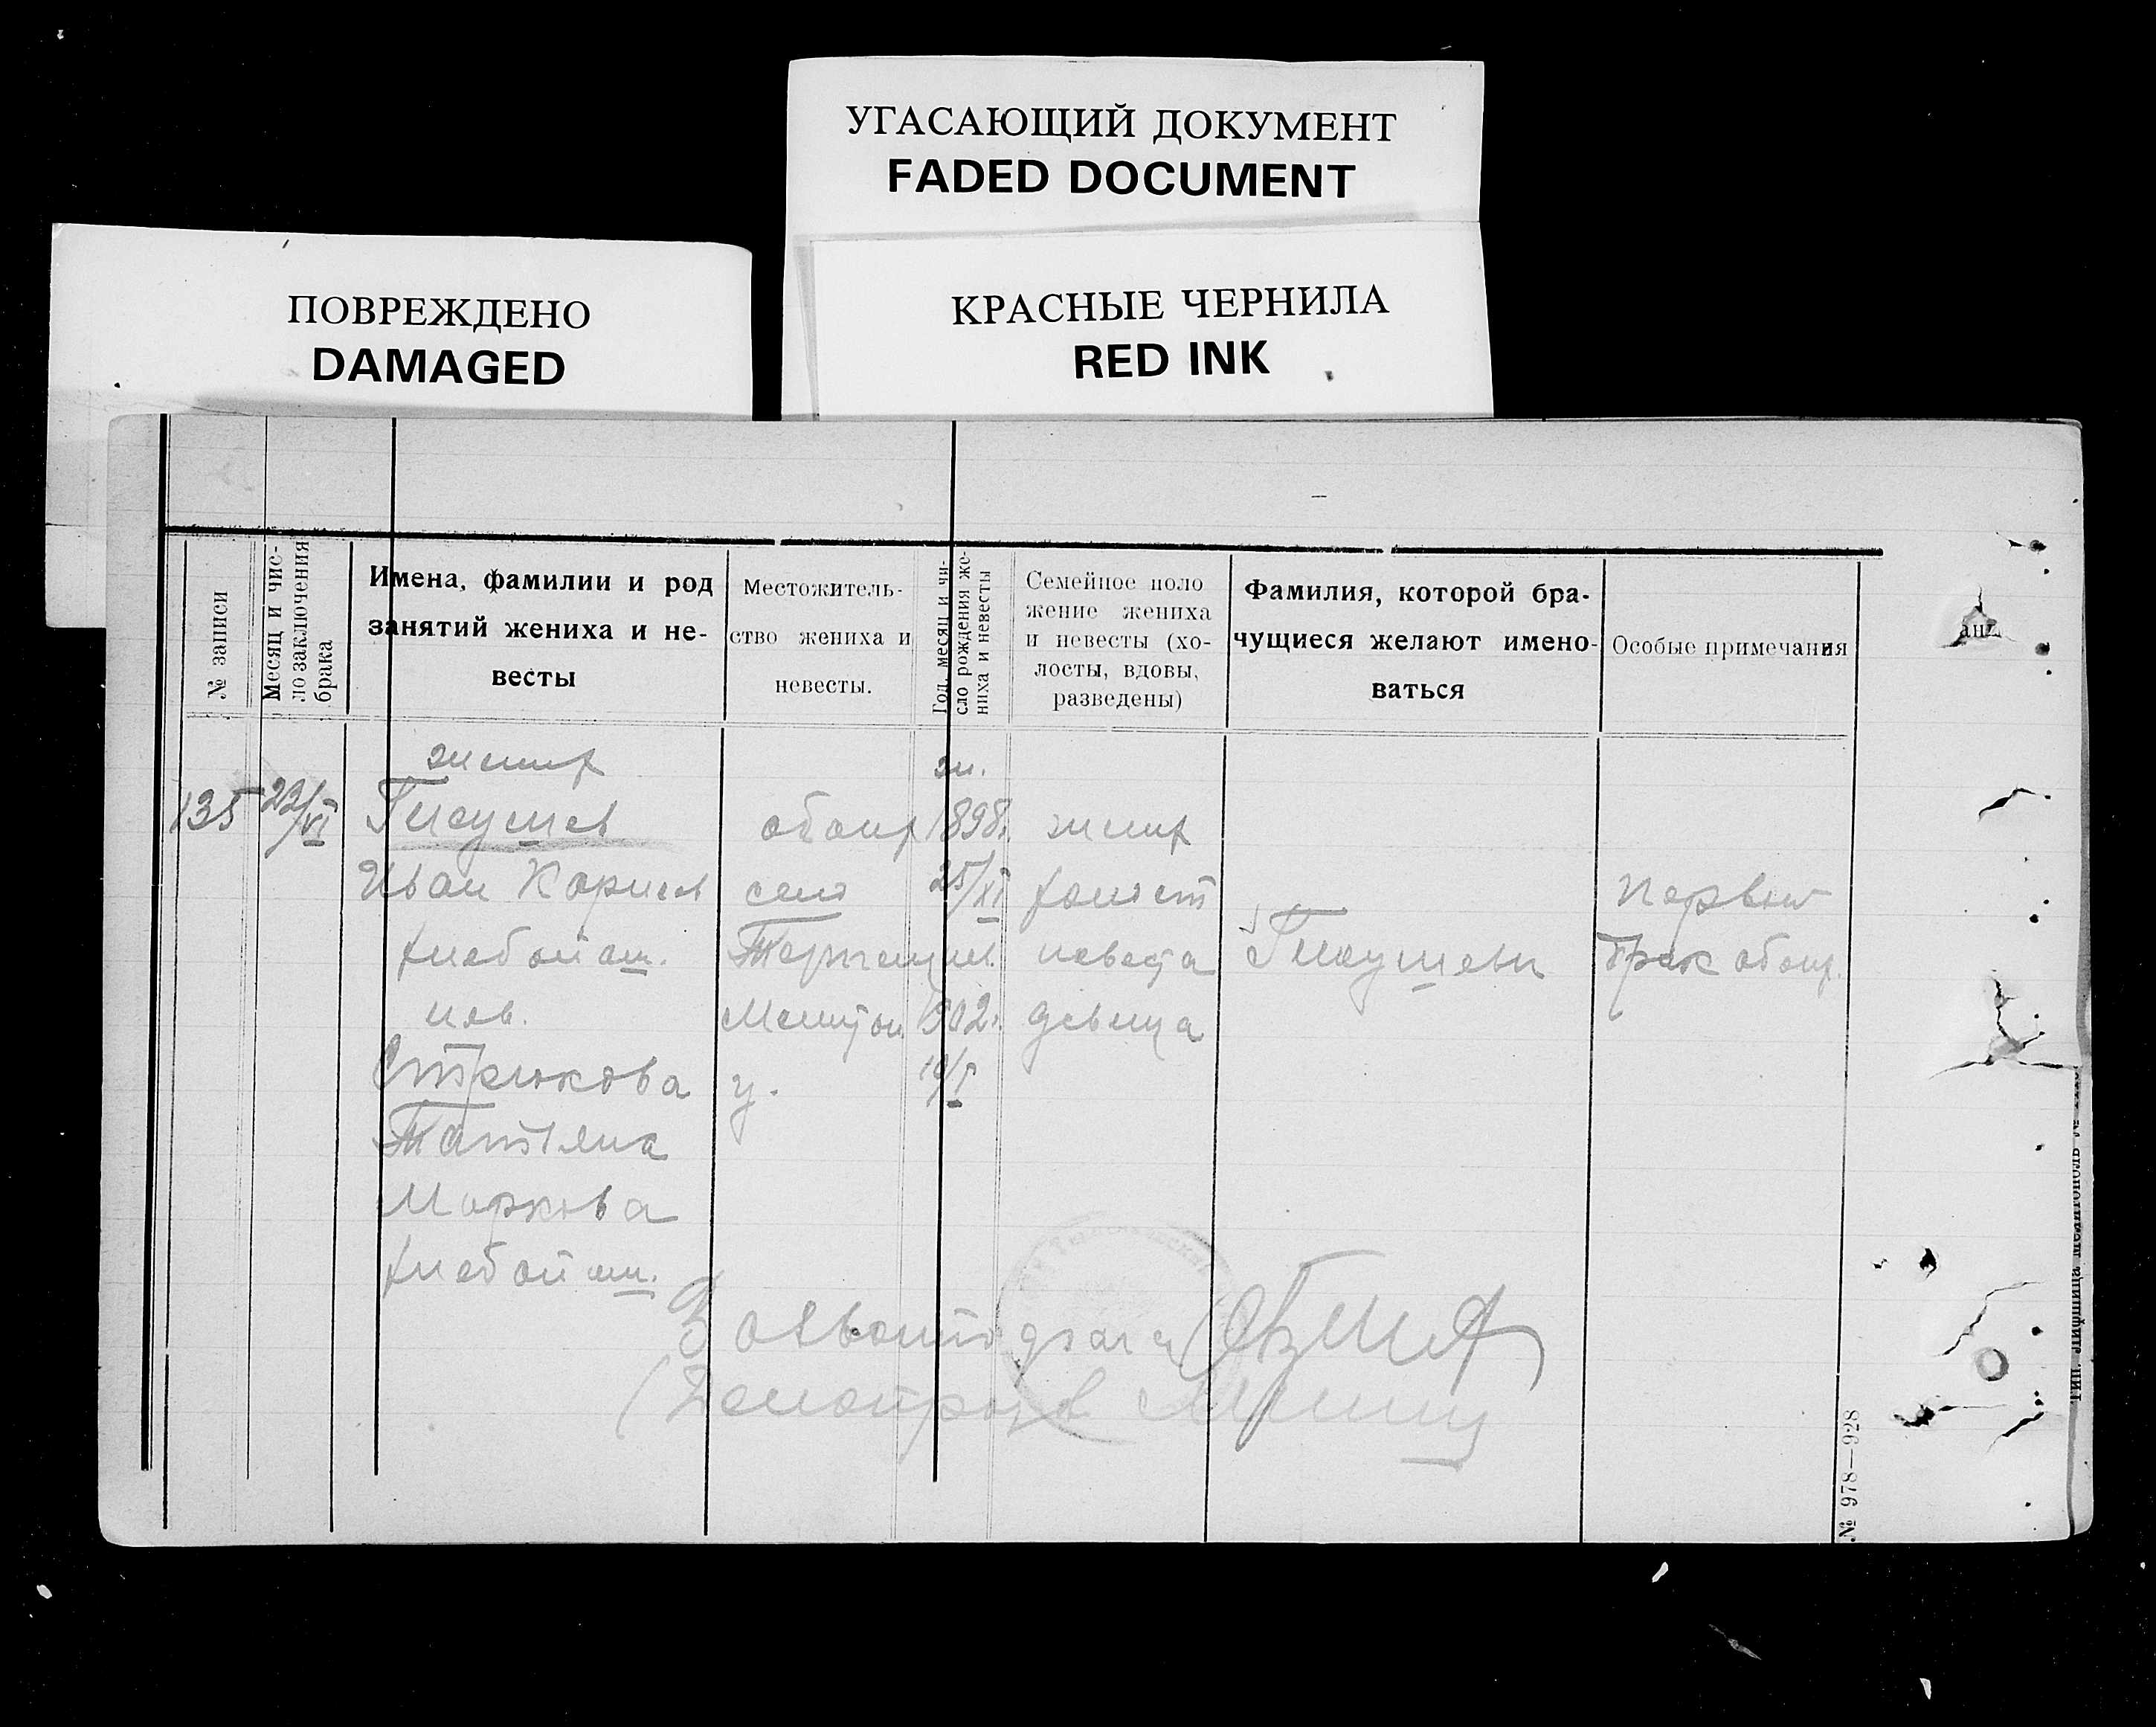 УГАСАЮЩИЙ ДОКУМЕНТ
FADED DOCUMENT
ПОВРЕЖДЕНО
DAMAGED
КРАСНЫЕ ЧЕРНИЛА
RED INK
№ записи
Месяц и чис-
ло заключения
брака
Имена, фамилии и род
занятий жениха и не-
весты
Местожитель-
ство жениха и
невесты.
Год, месяц и чи-
сло рождения же-
ниха и невесты
Семейное поло
жение жениха
и невесты (хо-
лосты, вдовы,
разведены)
Фамилия, которой бра-
чущиеся желают имено-
ваться
Особые примечания
135
22/VI
жених
Глоушев
Иван Корнеев
хлебопаш.
нев.
Стрюкова
Татьяна
Маркова
хлебопаш.
обоих
село
Мелитоп.
у.
жн.
1898г.
25/XI
1902г.
жених
холост
невеста
девица
Глоушевы
первый
брак обоих
анд
№ 978—928